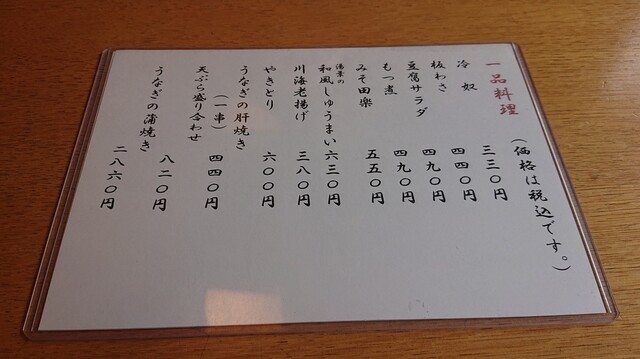 一品料理
(価格は税込です。)
冷奴 三三〇円
板わさ 四四〇円
豆腐サラダ 四九〇円
もつ煮 四九〇円
みそ田楽 五五〇円
湯葉の
和風しゅうまい 六三〇円
川海老揚げ 三八〇円
やきとり 六〇〇円
うなぎの肝焼き
(一串) 四四〇円
天ぷら盛り合わせ 八二〇円
うなぎの蒲焼き 二八六〇円